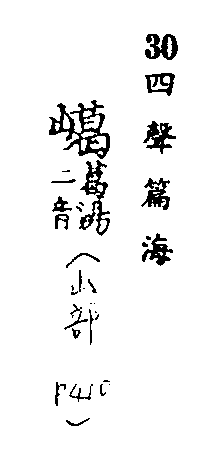 30 四聲篇海
嶱葛渴二音(山部 P410)